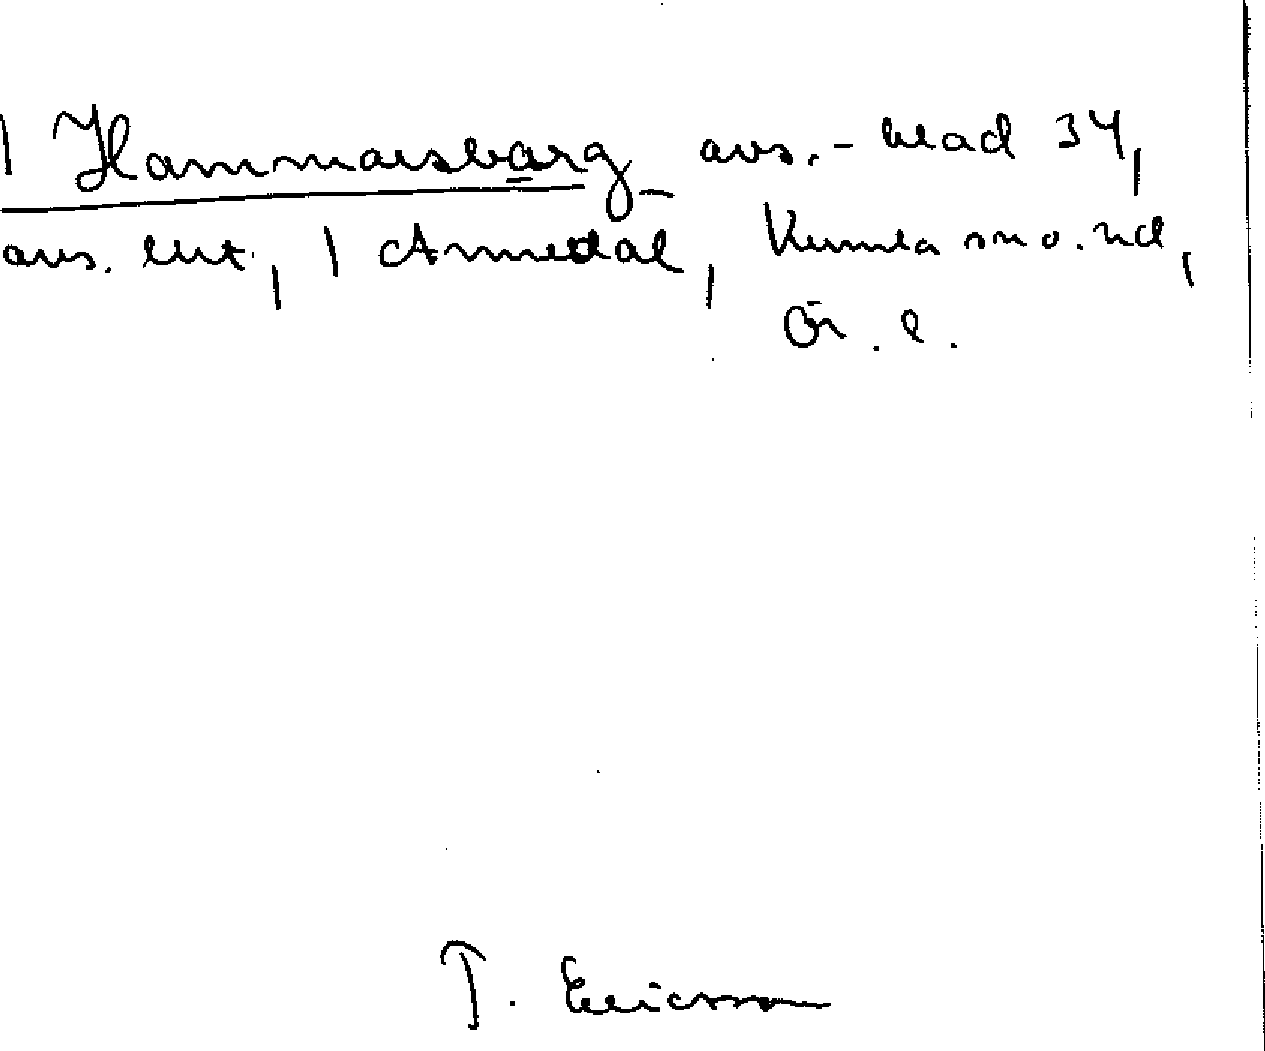 | Hammarsbarg_ avs.-blad 34,
avs. ut, | Annedal, Kumla sn o. hd,
Ör. l.
T. Ericsson